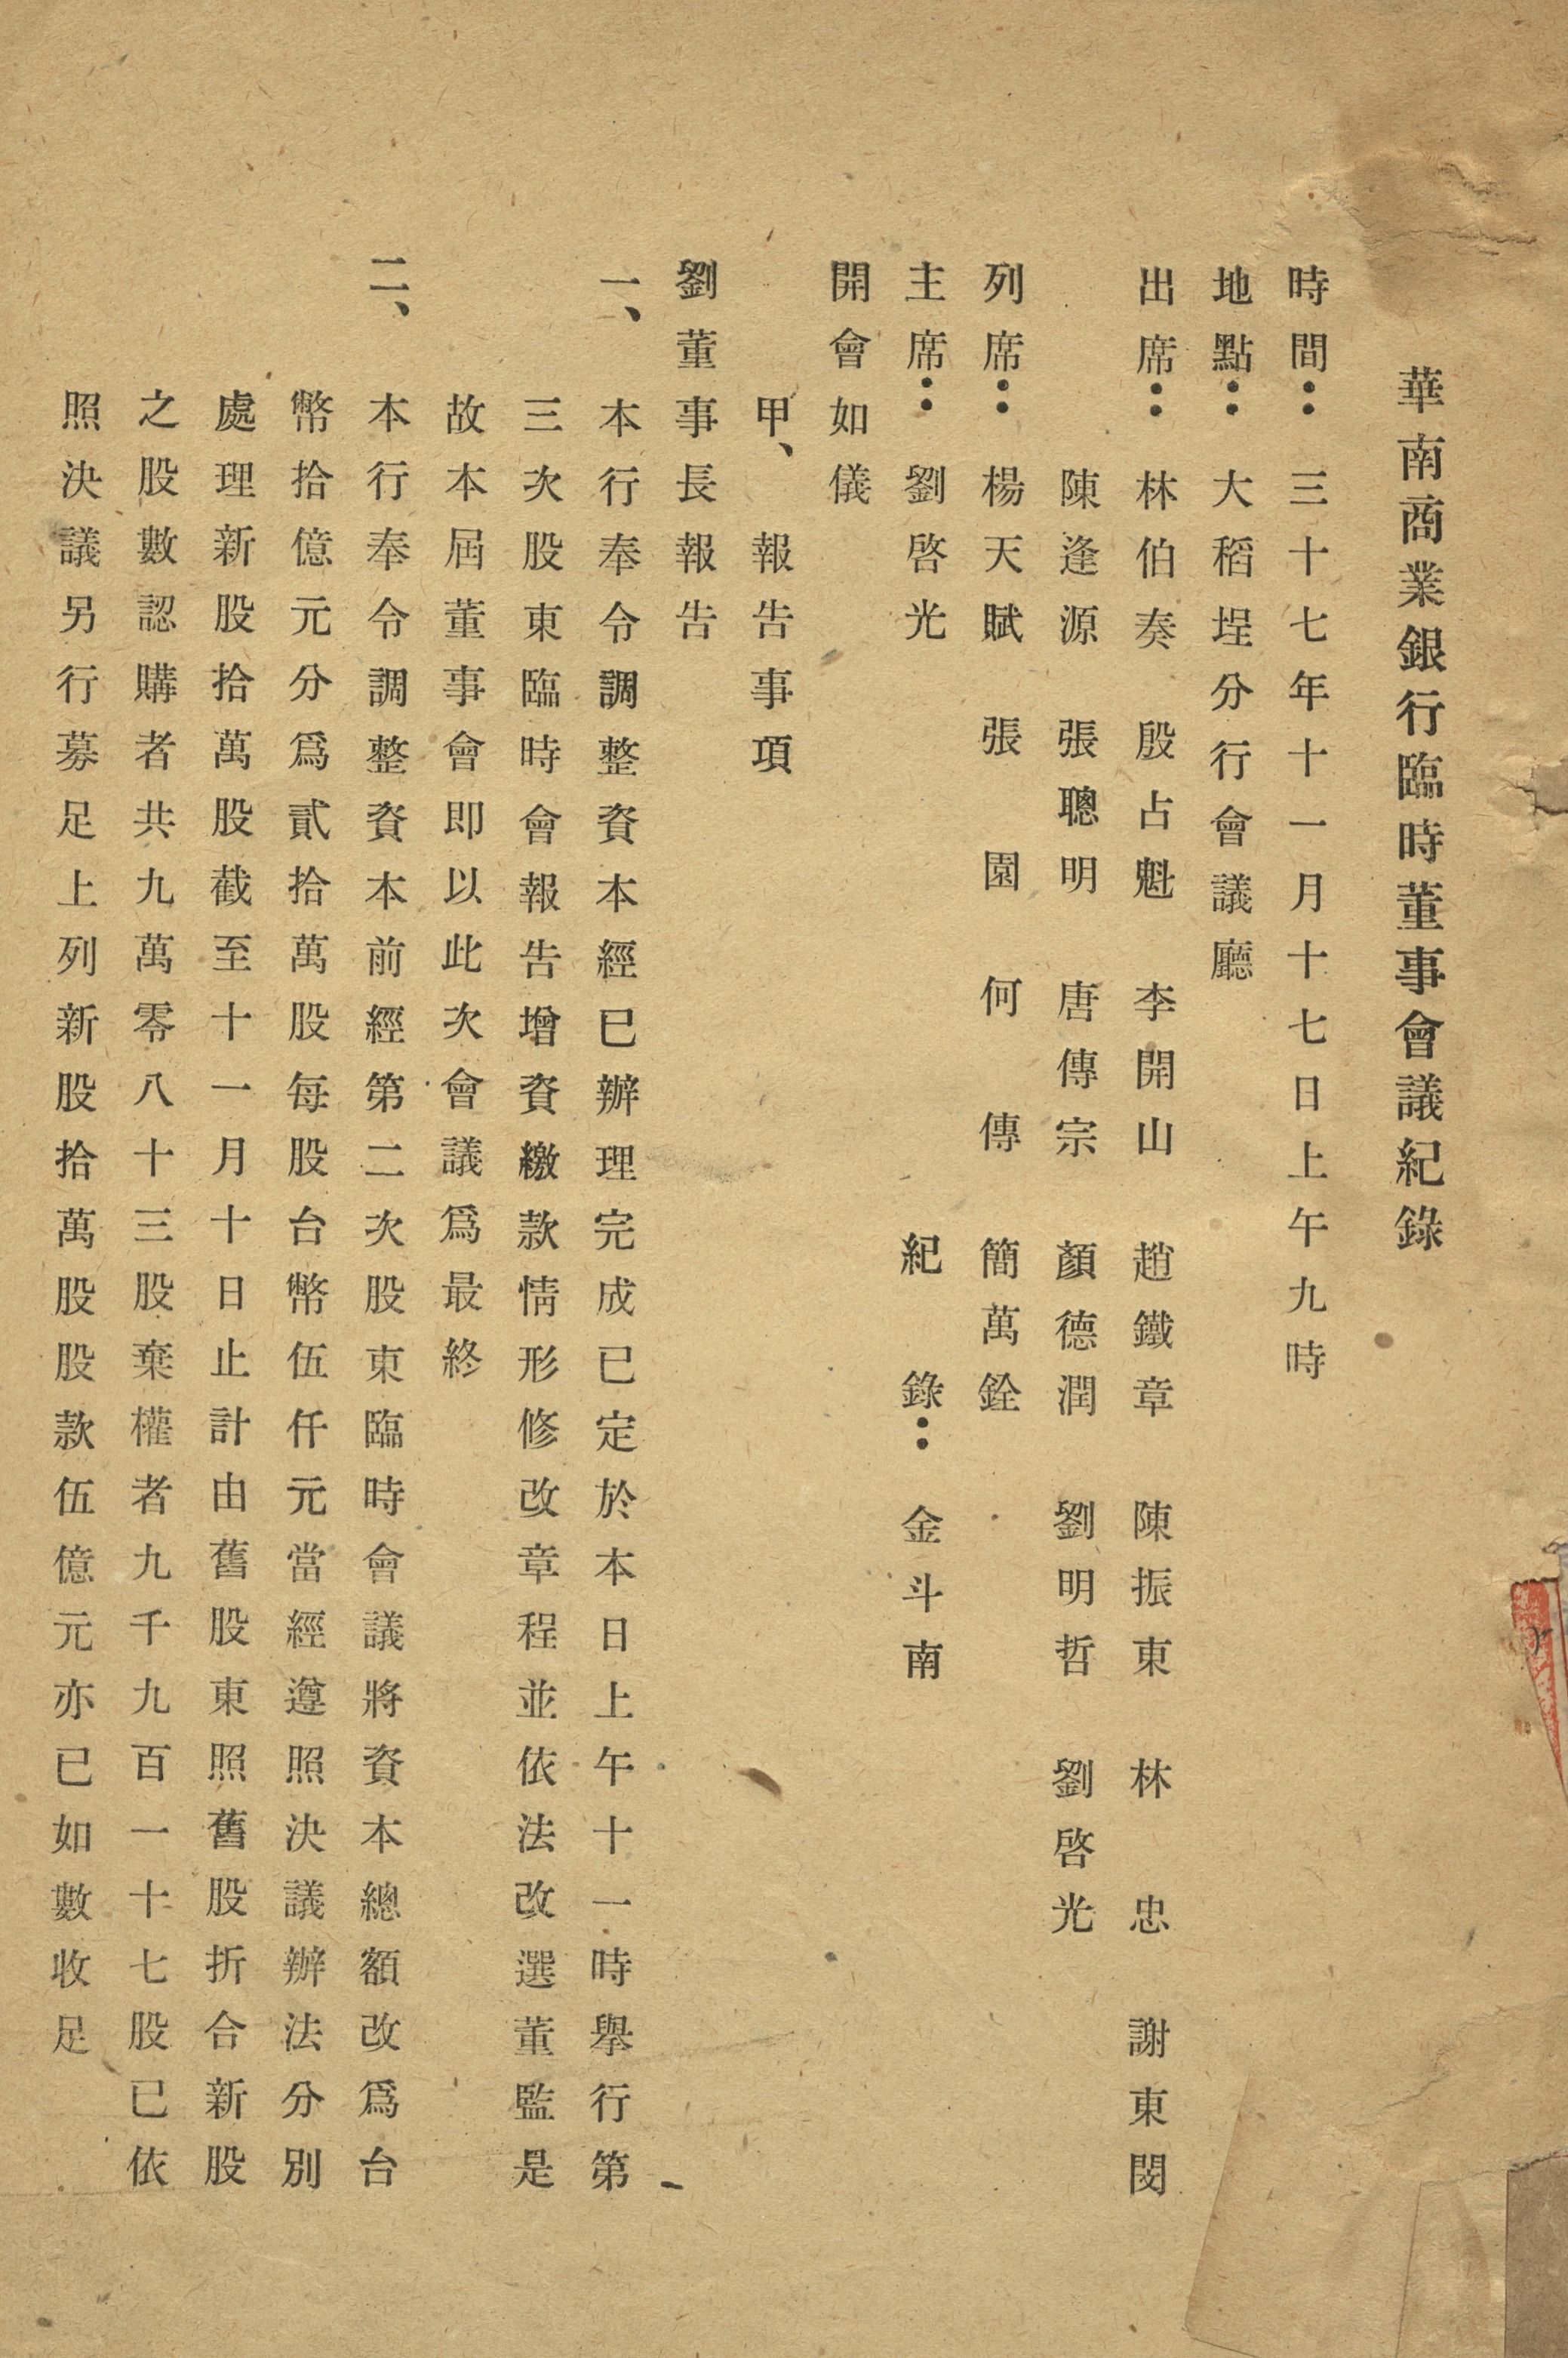 華南商業銀行臨時董事會議紀錄
時間：三十七年十一月十七日上午九時
地點：大稻埕分行會議廳
出席：林伯奏　殷占魁　李開山　趙鐵章　陳振東　林　忠　謝東閔
陳逢源　張聰明　唐傳宗　顏德潤　劉明哲　劉啓光
列席：楊天賦　張　園　何　傳　簡萬銓
主席：劉啓光　紀　錄：金斗南
開會如儀
甲、報告事項
劉董事長報告
一、本行奉令調整資本經已辦理完成已定於本日上午十一時舉行第
三次股東臨時會報告增資繳款情形修改章程並依法改選董監是
故本屆董事會即以此次會議爲最終
二、本行奉令調整資本前經第二次股東臨時會議將資本總額改爲台
幣拾億元分爲貳拾萬股每股台幣伍仟元當經遵照決議辦法分別
處理新股拾萬股截至十一月十日止計由舊股東照舊股折合新股
之股數認購者共九萬零八十三股棄權者九千九百一十七股已依
照決議另行募足上列新股拾萬股股款伍億元亦已如數收足